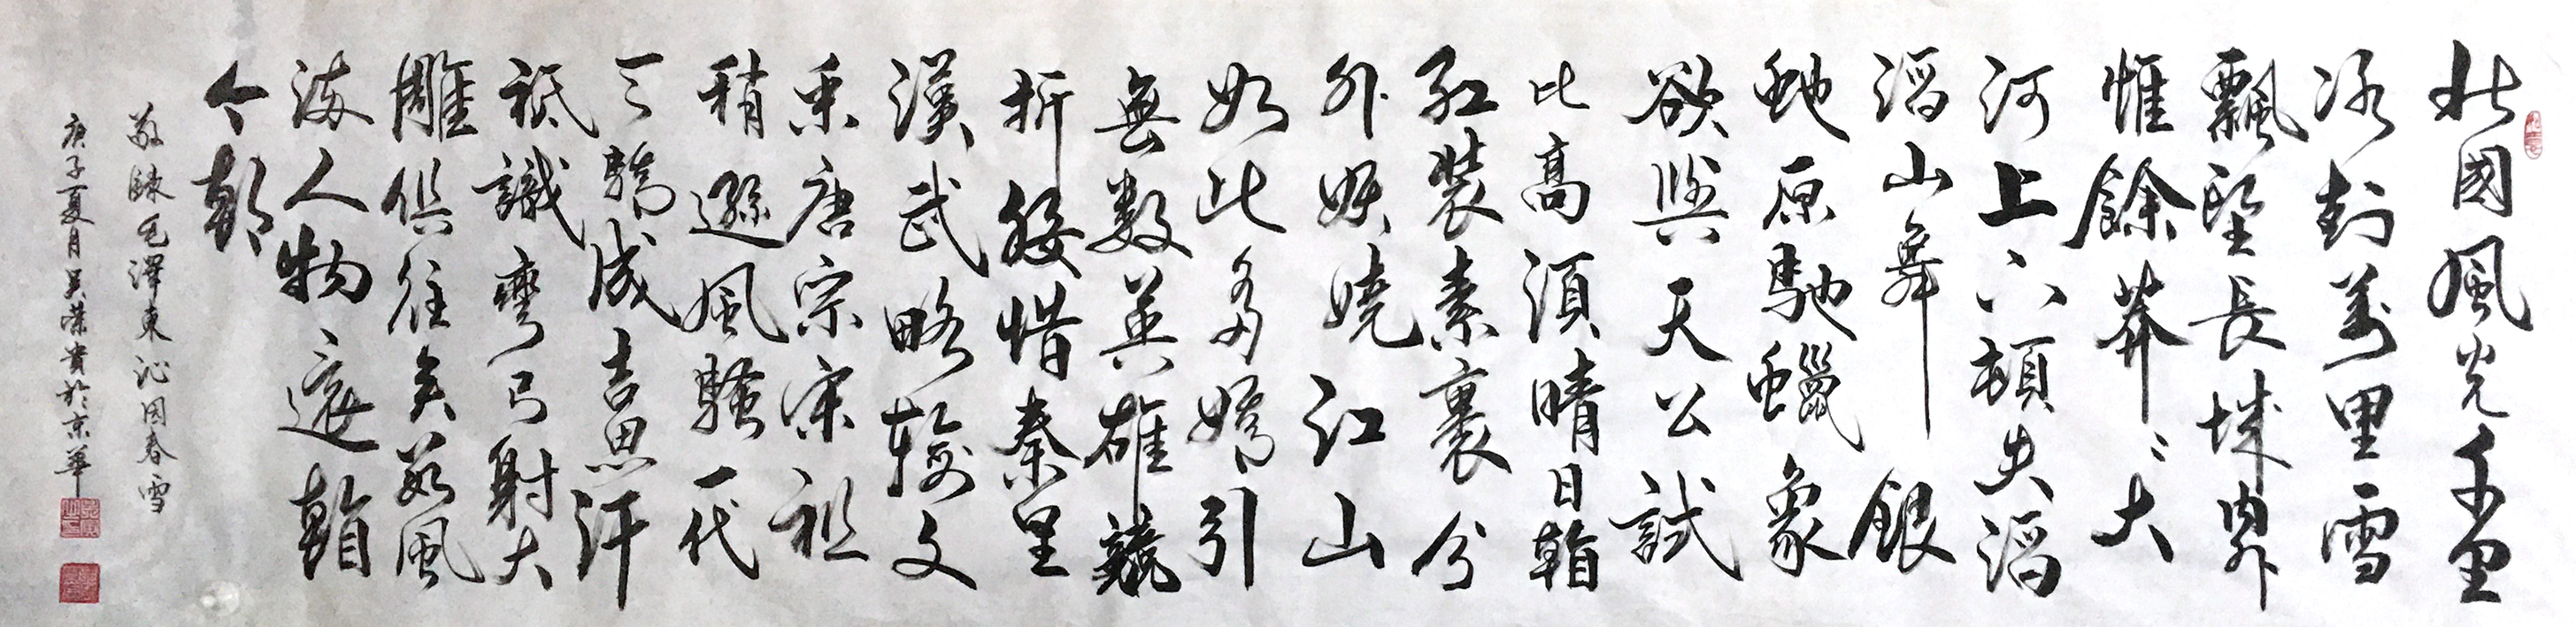 北國風光千里
冰封萬里雪
飄望長城內外
惟餘莽〻大
河上下頓失滔
滔山舞銀
蛇原馳蠟象
欲與天公試
比高須晴日看
紅裝素裹分
外妖嬈江山
如此多嬌引
無數英雄競
折腰惜秦皇
漢武略輸文
采唐宗宋祖
稍遜風騷一代
天驕成吉思汗
祗識彎弓射大
雕俱往矣數風
流人物還看
今朝
敬錄毛澤東沁園春雪
庚子夏月吳榮貴於京華